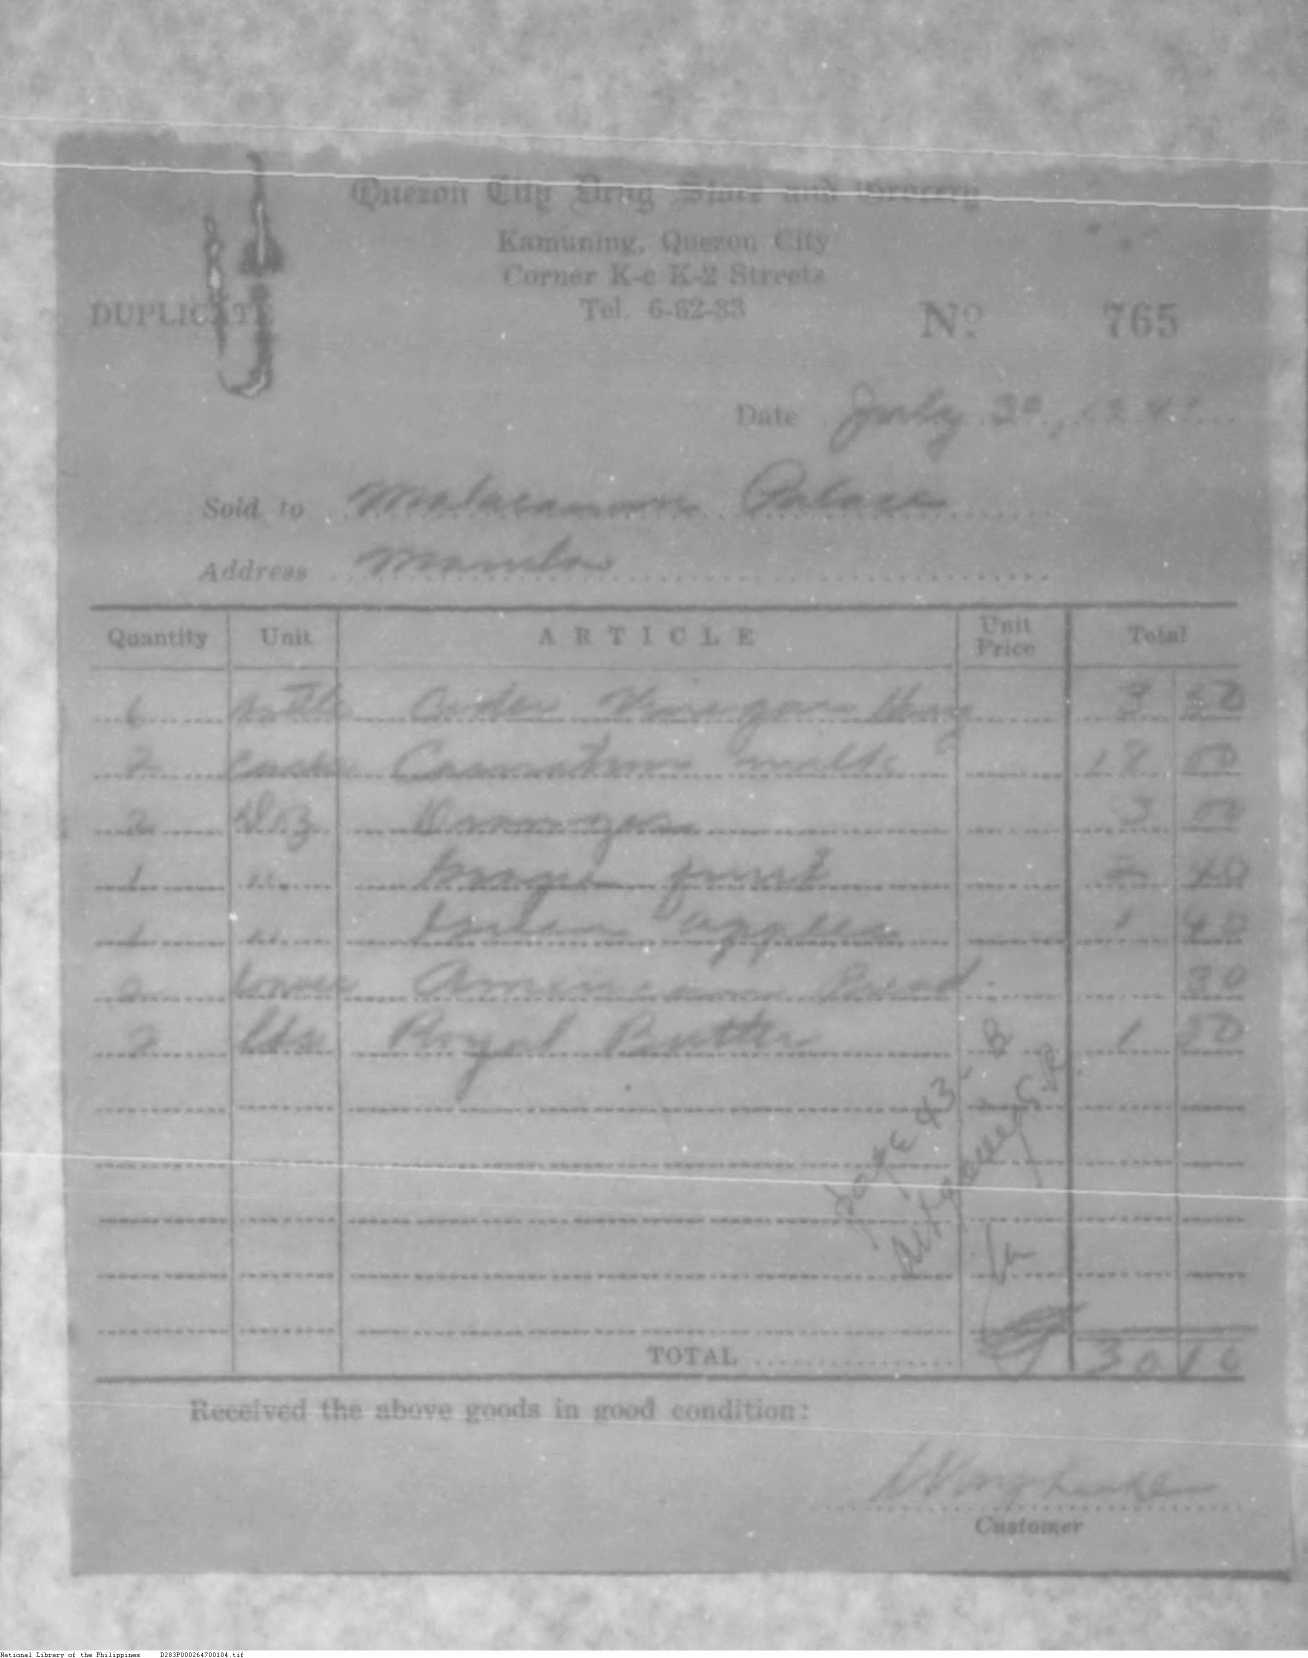 Quezon City Drug Store and Grocery
Kamuning, Quezon City
Corner K-c K-2 Streets
Tel. 6-62-33
DUPLICATE
Nº 765
Date July 30, 194
Sold to Malacanan Palace
Address Manila
Quantity Unit ARTICLE Unit Price Total
6 Cider Vinegar 3 50
2 Carnation milk 18 00
2 Doz Oranges 3 00
1 " Grape fruit 2 40
1 " apples 1 40
2 American Bread 30
2 lbs Royal Butter 1 50
page 43 - B
TOTAL 30 10
Received the above goods in good condition:
Customer
National Library of the Philippines D283P000264700104.tif